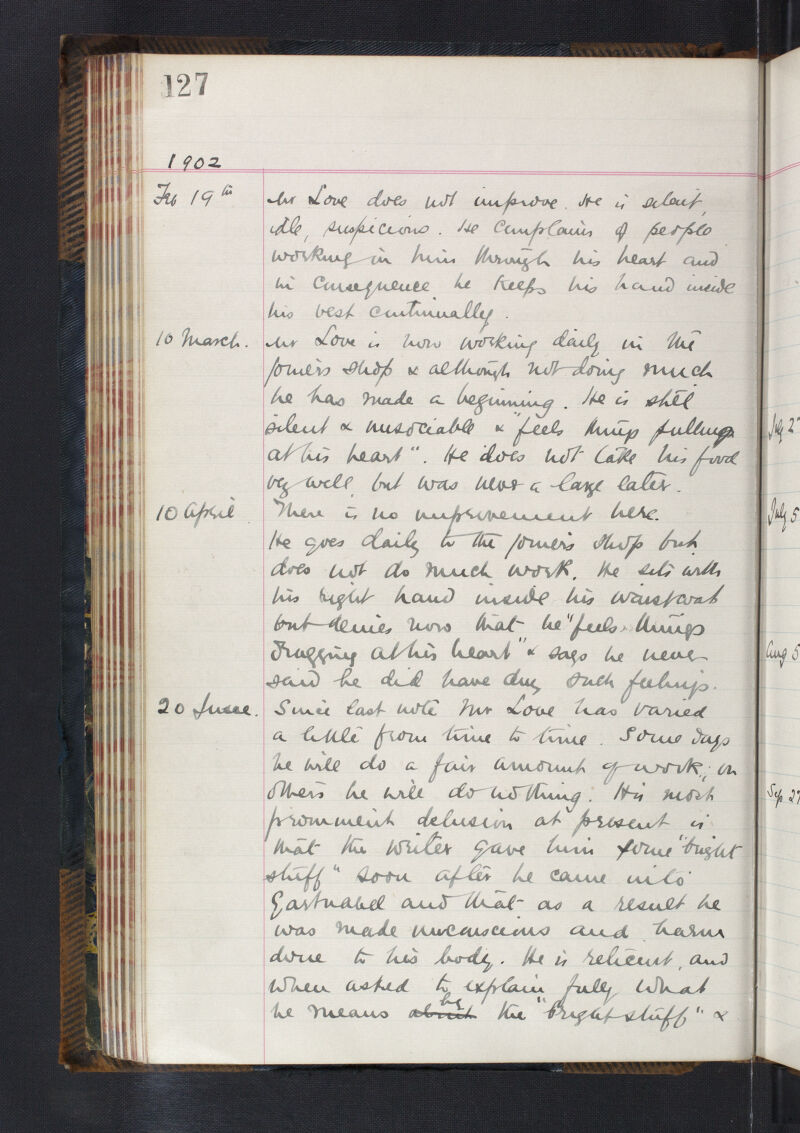 127
1902
Feb 19th Mr Love does not improve. He is silent,
idle, suspicious. He complains of people
working in him through his heart and
in consequence he keeps his hand inside
his vest continually.
10 March. Mr Love is now working daily in the
joiners shop & although not doing much
he has made a beginning. He is still
silent & unsociable & "feels things pulling
at his heart". He does not take his food
very well, but was never a large eater.
10 April There is no improvement here.
He goes daily to the joiners shop but
does not do much work. He sits with
his right hand inside his waistcoat
but denies now that he "feels things
dragging at his heart" & says he never
said he did have any such feelings.
20 June. Since last note Mr Love has varied
a little from time to time. Some days
he will do a fair amount of work; on
others he will do nothing. His most
prominent delusion at present is
that the writer gave him some "bright
stuff" soon after he came into
Gartnavel and that as a result he
was made unconscious and harm
done to his body. He is reticent, and
when asked to explain fully what
he means about by the "bright stuff" &
July 27
July 5
Aug 5
Sep 27